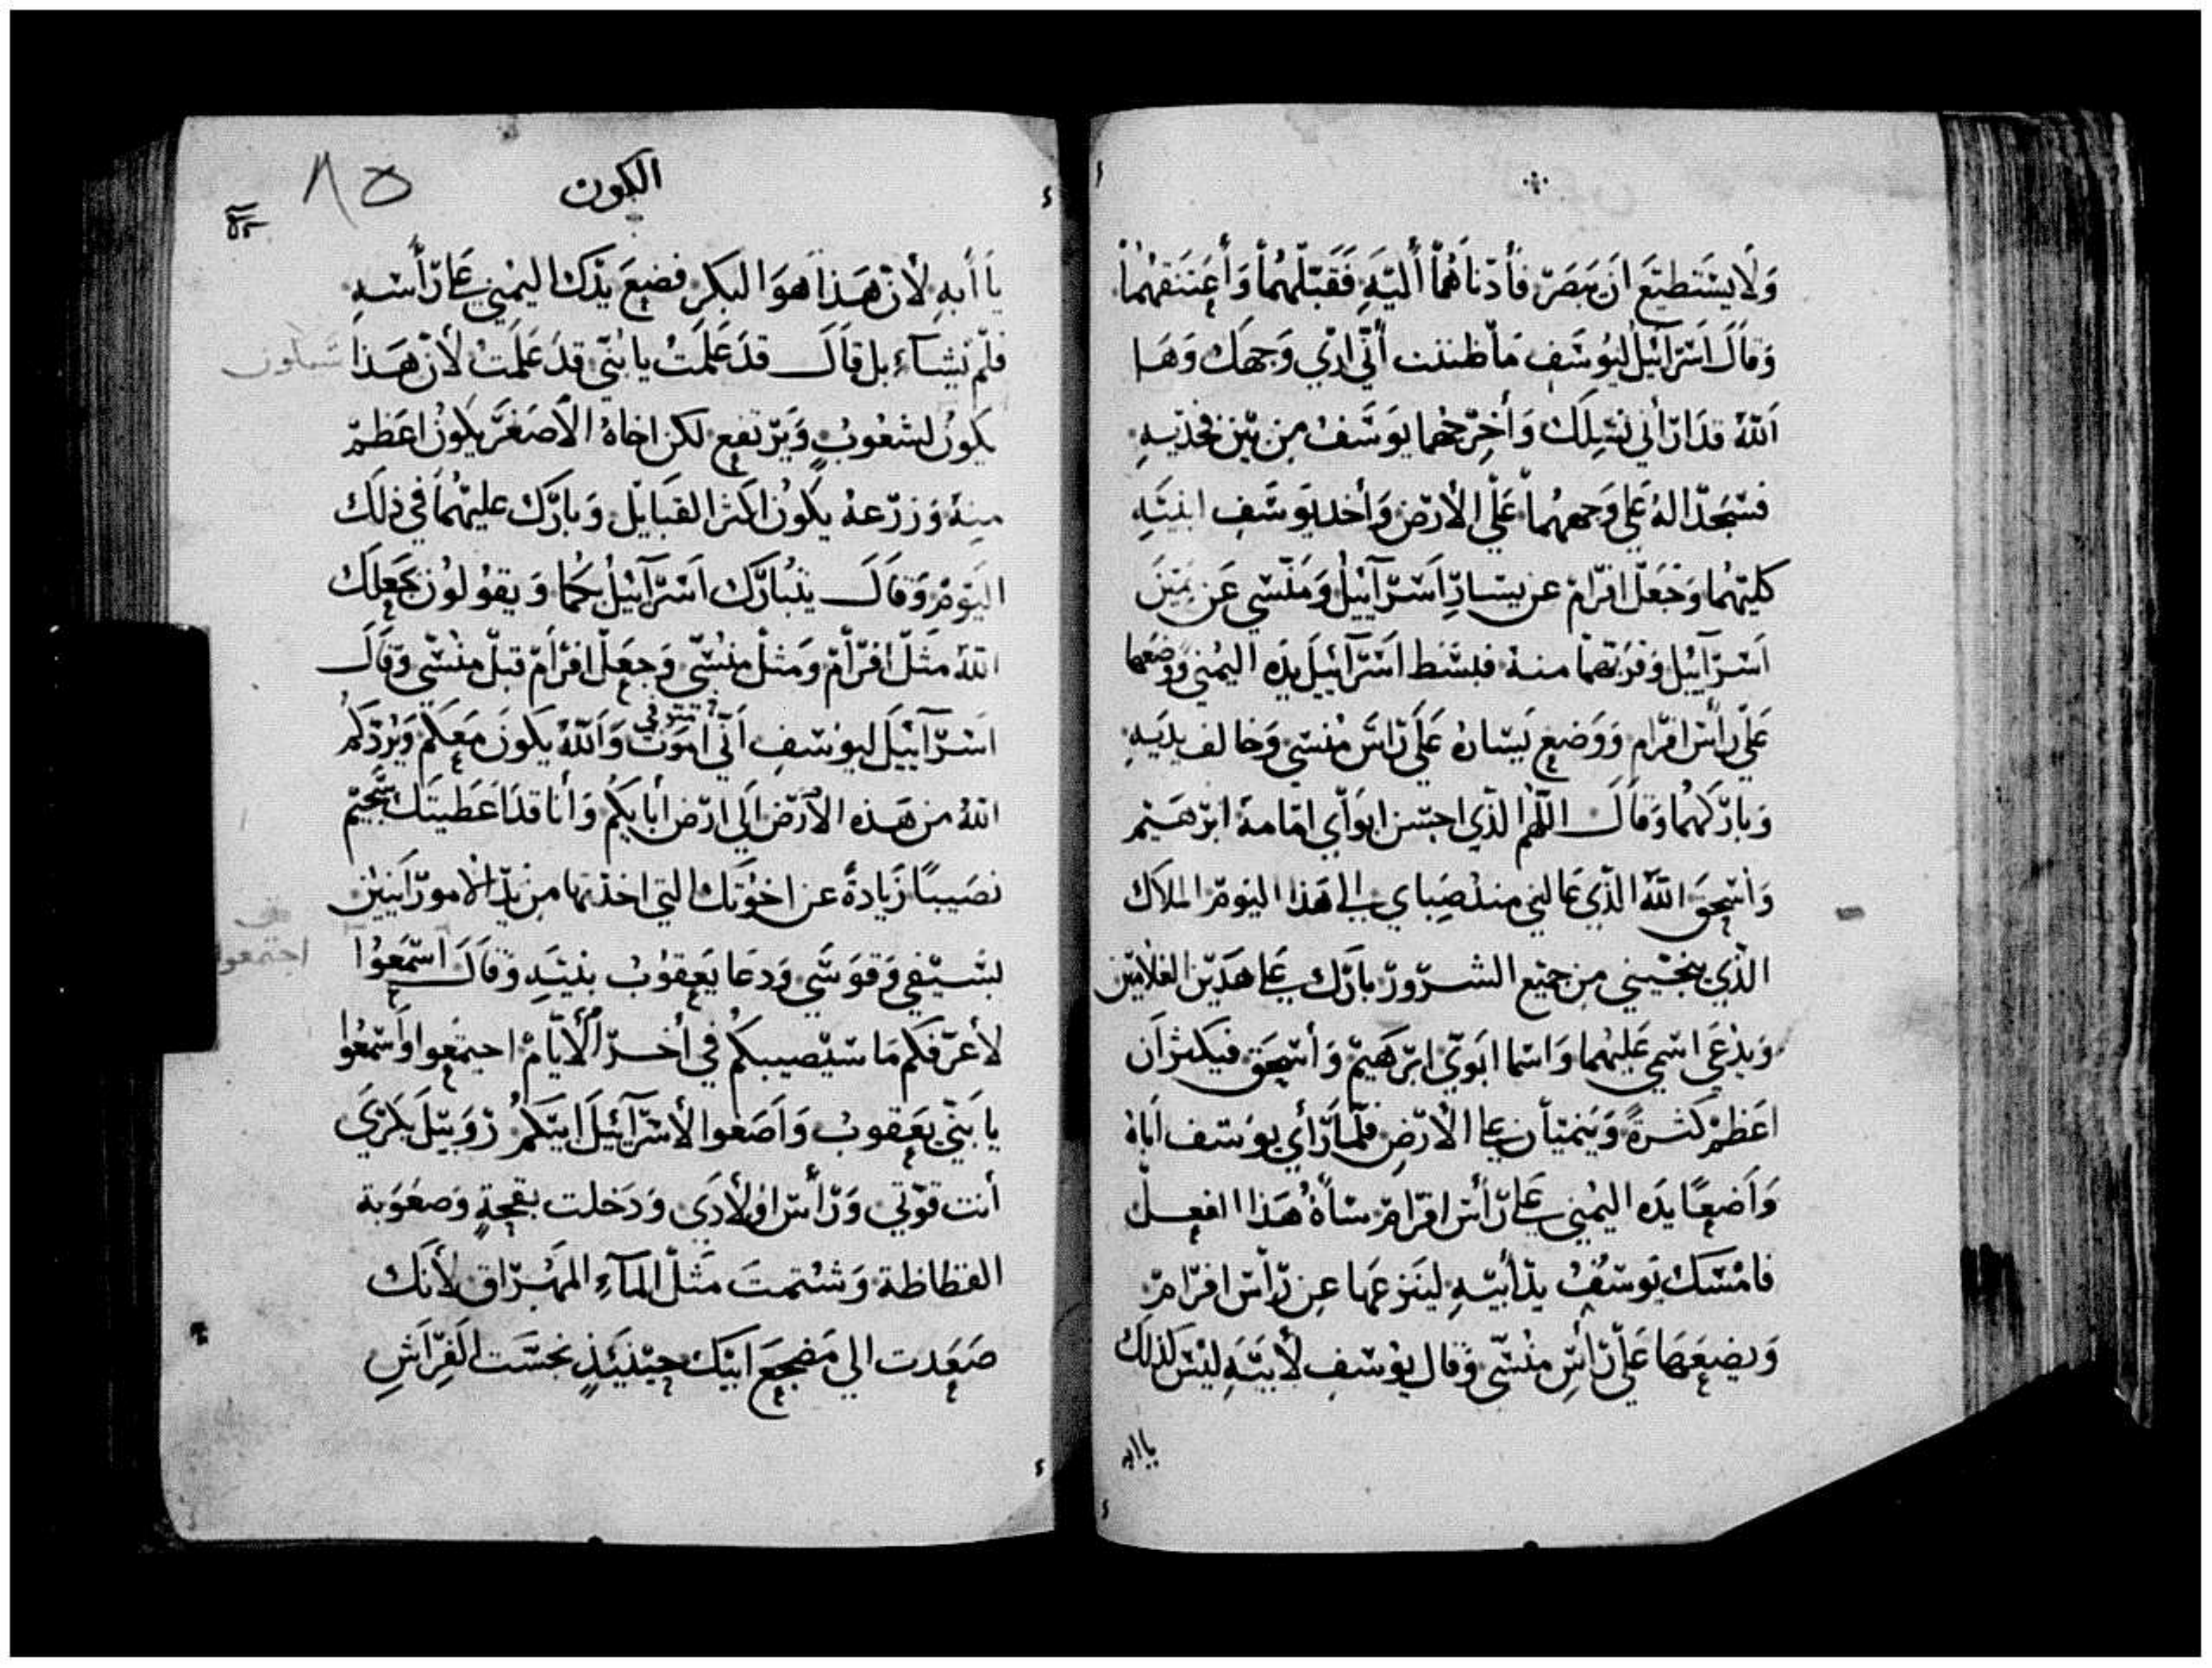 وَلَا يَسْتَطيَع ان يَبصَرّ فأدّناهُمْا أليّهَ فَقَبّلهُمْا وَأعَتَنَقهُمْا
وَقاَلَ اَسَرَائيْل ليُوسَّفِ مَا ظننت أنّي اري وَجهَك وَهَا
اَللّهُ قدَ ارّاْني نسّلِكَ وَأخرّجهُما يوَسَّفْ مِن بيْن فخذيّهِ
فسَّجَدّا لهُ عَلي وَجههُماْ عَلّي الأرّض وَأخد يوَسَّفِ ابنيَهِ
كليّهُما وَجَعَلّ افرّامْ عن يسَارّ اَسَرّآئيْل وَمَنّسّي عَن يَميْن
اَسَرّآيْيل وَقرّبَهما منهْ فبسَّط اَسَرّآئيْل يدَه اليمُني وَوضَعهَا
عَلّي رأسَ افرّامِ وَوَضعِ يَسَارهُ عَلَي رّاسَ مْنسّي وَخالف يديَهِ
وَبارّكهُما وَقاَلَ اللّهمْ الذّي احسّن ابوَآي امَامهَ ابرّهَيْم
وَأسّحِقَ اللّهْ الذّي عَالني منذ صِبَاي الي هَذا اليَومْ الملاك
الذّي ينجيّني مِن جميّع الشرّورّ بارّك علي هَذيّن الغلاميّن
وَيدْعَي اسَمي عَليْهما وَاسَما ابَويّ ابرّهَيمّ وَأسّحِقَ فيَكثرَان
اَعظمْ كثرّةً وَيَنميّان علي الأرّضِ فلمّا رّأي يوسّف اَباهْ
وَاَضعِاً يدَه اليمْني علي رّأسَ افرّامِ سّاءّهْ هَذا الفعِلّ
فامْسَك يَوسّفْ يدّ أبيّهِ لينَزعَها عِن رّأسّ افرّامّ
وَيضَعَها عَلّي رّأسّ منْسّي وَقال يوْسّفِ لأبيّهِ ليْسّ كذلك
يا ابه
الكون
٨٥
يَا أبهِ لأن هَذا هوَ البَكرِ فضعِ يدّك اليَميْني علي رّأسهِ
فلمّ يشآء بل قاَلَ قدَ عَلمَتُ يا بنيّ قدَ عَلمَتُ لأن هَذا
يكَونُ لشعوْبٍ وَيَرّتفعِ لكن اخاهْ الأصَغرّ يكَونُ اعَظمّ
مِنهْ وَزرّعهْ يكَونُ اكثر القبَايلّ وَبارّك عليهُماْ في ذلك
اليَومْ وَقاَلَ يتبُارّك اَسَرّآئيْل بكما وَيقوُلوُن يجَعلِك
اللّهُ مثَلّ افرّامّ وَمثلْ منسّي وَجعَلّ افرّامّ قبلّ منْسّي وَقاَلَ
اَسَرّآئيْل ليوْسّفِ اَنّي اموَت وَاَللّهْ يكَونَ مَعكمَ وَيَرْدّكمْ
اللّهُ من هَذه الأرّض اَلي ارّض أبايكمْ وَأنا قدَ اَعَطيتَك شَّجيّم
نصَيباً زَيادةً عن اخوْتك التي اخذتها مِن يدّ الامورّانيين
بسَّيْفي وَقوَسَّي وَدعَا يَعِقوُبْ بنيَهِ وَقاَلَ اسّمَعِوُا
لأعَرّفكم مَا سَيْصيبكمْ في أخرّ الأيّامْ اجتمعِوا وَاَسَّمعْوا
يا بَنيّ يعَقوبْ وَاَصَغوا لأسّرّآئيَل ابيَكمْ رّوَبيّل بكرّيَ
أنت قوّتي وَرّأسّ اوْلادَي وَدَخلت بقحةٍ وَصعَوَبة
الفظاظة وَشتْمتَ مَثلّ المآءِ المَهْرّاق لأنَك
صَعَدت الي مَضجعَ ابيْك حيْنئيَذٍ نجسّت الفِرّاَشِ
شيلون
اجتمعوا